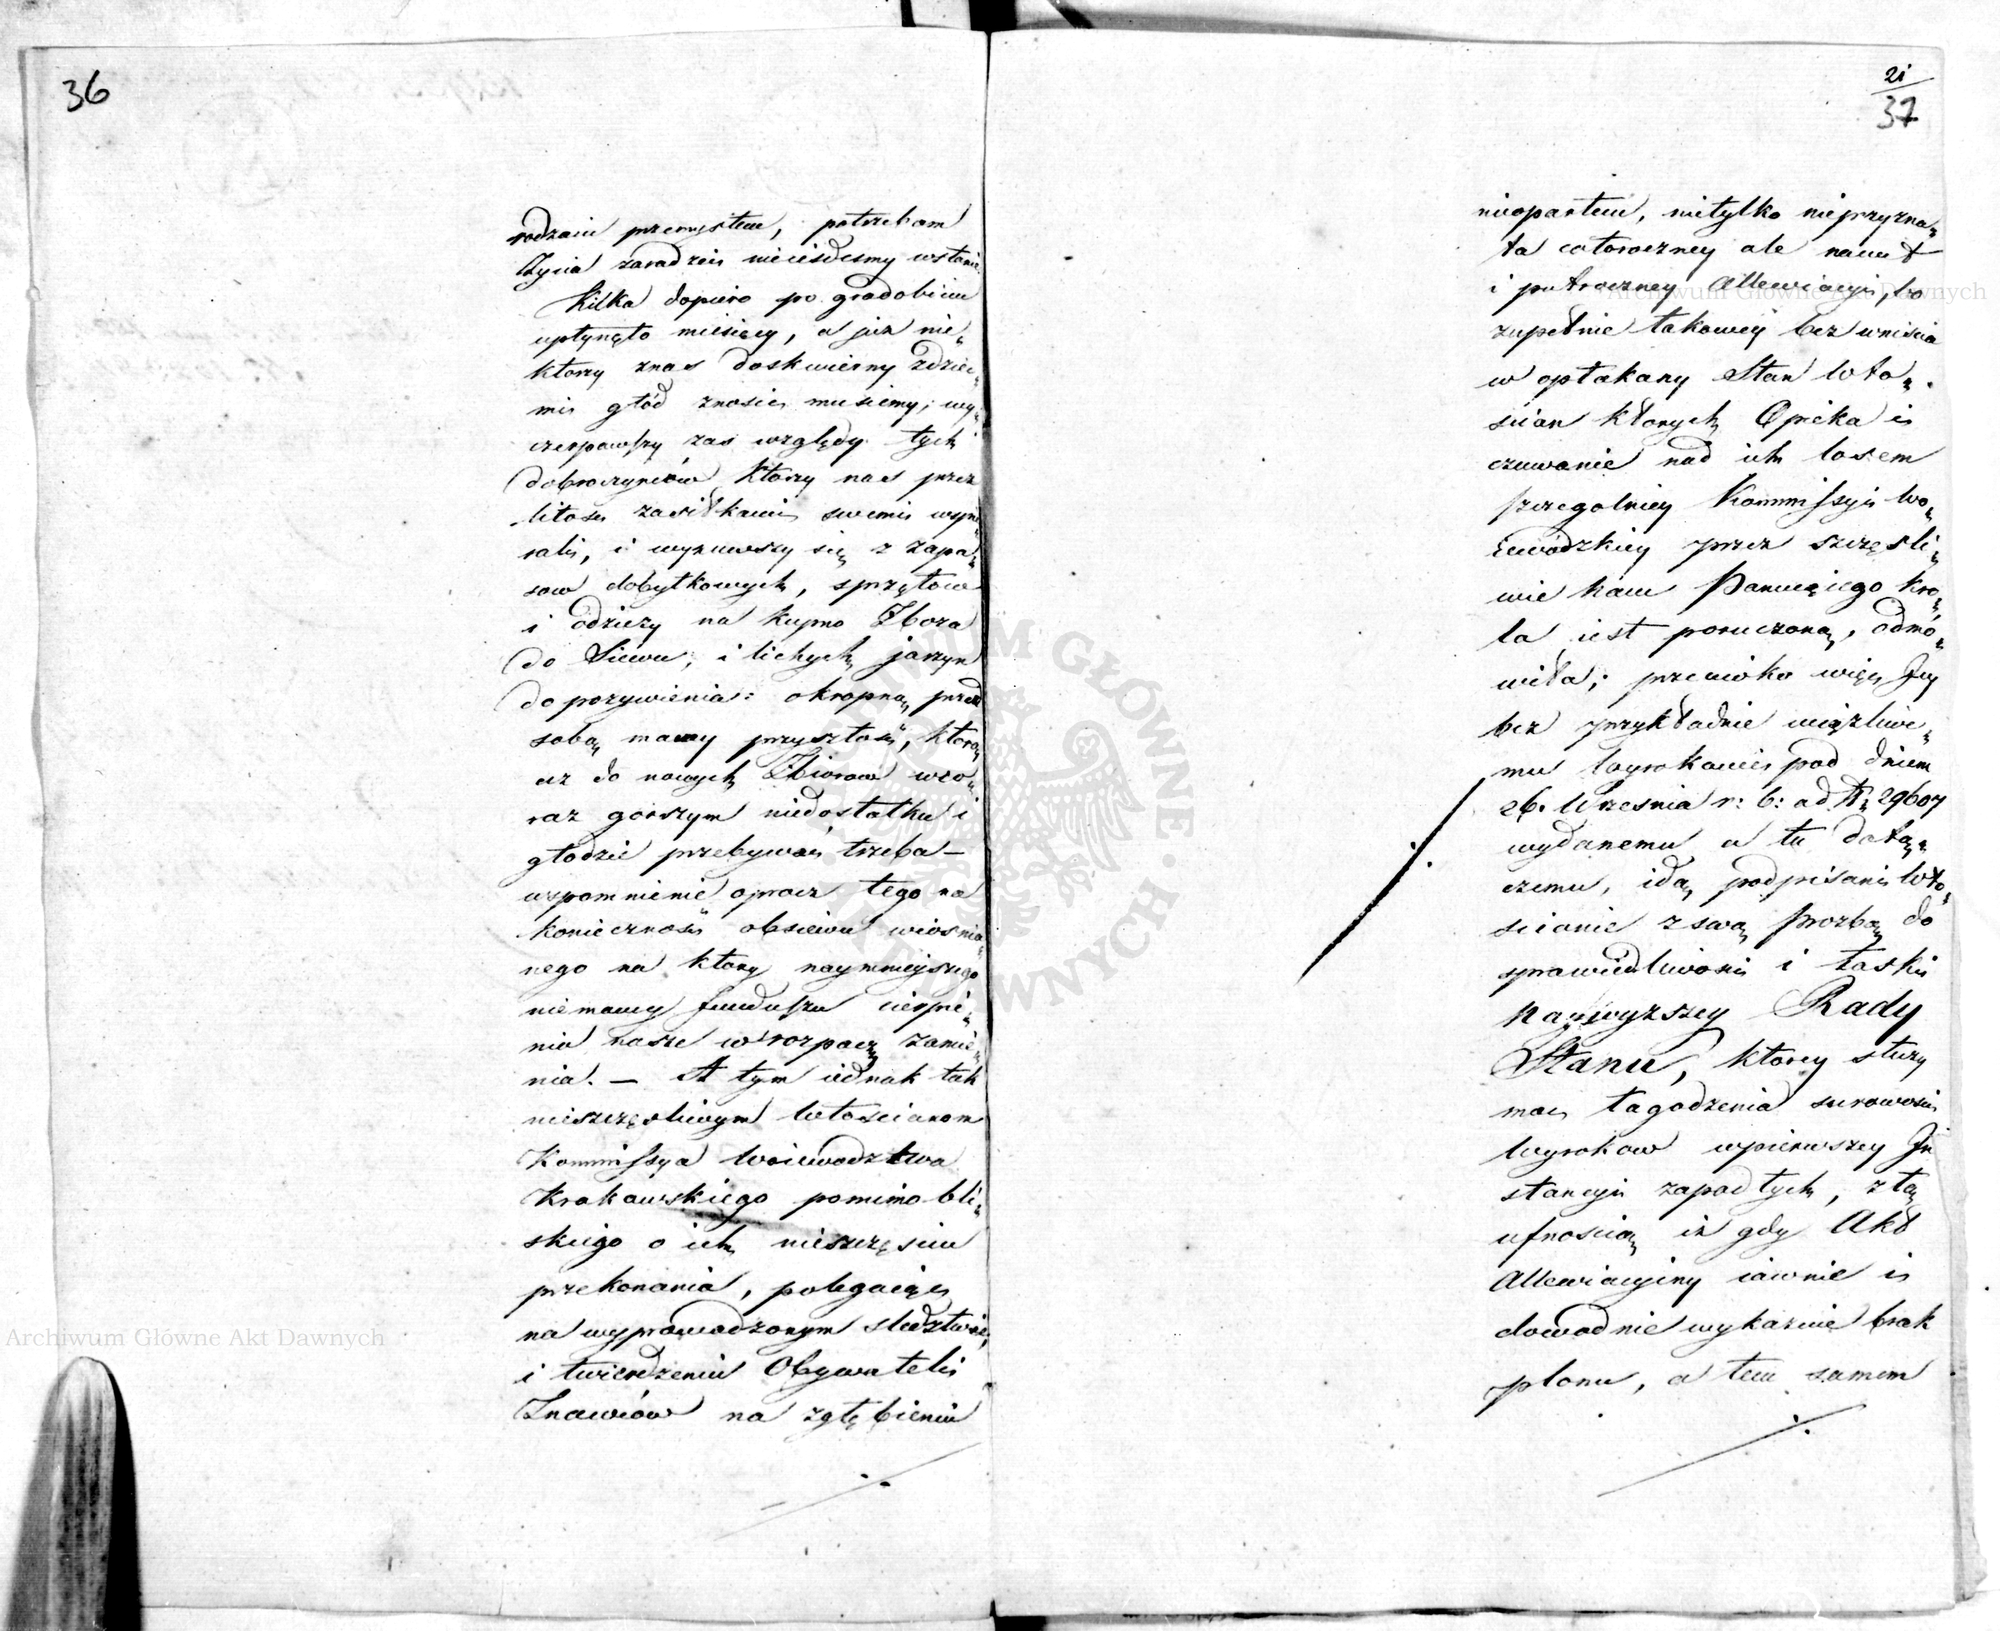 36
rodzaiu przemysłem, potrzebom
Życia zaradzić nieiesteśmy wstanie
Kilka dopiero po gradobiciu
upłynęło miesięcy, a już nie„
ktorzy znas doskwierny zdzieć„
mi głód znosić musiemy; wy„
czerpawszy zas względy tych
dobroczyńców, ktorzy nas przez
litość zasiłkami swemi wspie„
rali, i wyzuwszy się z zapa„
sow dobytkowych, sprzętow
i odzieży na kupno Zboza
do Siewu, i lichych jarzyn
do pozywienia: okropną przed
sobą mamy przyszłość, ktorą
az do nowych Zbiorow wco„
raz gorszym niedostatku i
głodzie przebywać trzeba —
wspomnienie oprocz tego na
konieczność obsiewu wiosnia„
nego na ktory naymnieyszego
niemamy funduszu cierpie„
nia nasze w rozpacz zamie„
nia. — A tym iednak tak
nieszczęsliwym włoscianom
Kommissya Woiewodztwa
Krakowskiego pomimo bli„
skiego o ich nieszczęściu
przekonania, polegaiąc
na wyprowadzonym sledztwie,
i twierdzeniu Obywateli
Znawców na zgłębieniu
21
37
nieopartem, nietylko nieprzyzna„
ła całoroczney ale nawet
i pułroczney Allewiacyi, bo
zupełnie takowey bez wniścia
w opłakany Stan Wło„
scian ktorych Opieka i
czuwanie nad ich losem
szczegolniey Kommissyi Wo„
iewodzkiey przez szczęśli„
wie nam Panuiącego Kro„
la iest poruczoną, odmó„
wiła; przeciwko więc Jey
bez przykładnie uciążliwe„
mu Wyrokowi pod dniem
26. Wrzesnia r: b: ad N: 29607
wydanemu a tu dołą„
czemu, idą podpisani Wło„
scianie z swą Prozbą do
sprawiedliwości i łaski
Naywyższey Rady
Stanu, ktorey służy
moc łagodzenia surowości
Wyrokow wpierwszey In
stancyi zapadłych, z tą
ufnoscią iż gdy Akt
Allewiacyiny iawnie i
dowodnie wykazuie brak
plonu, a tem samem